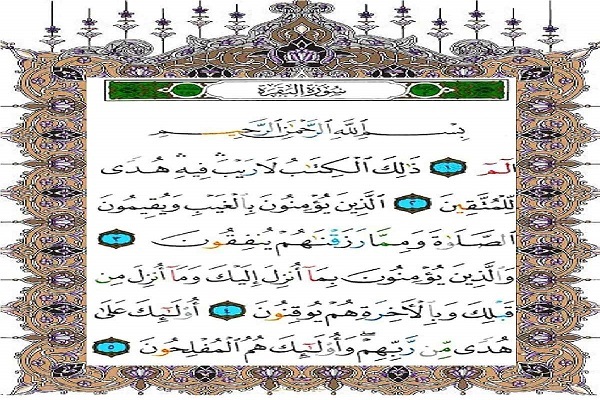 سُورَةُ البَقَرَةِ
بِسْمِ ٱللَّهِ ٱلرَّحْمَٰنِ ٱلرَّحِيمِ
الٓمٓ ١ ذَٰلِكَ ٱلْكِتَٰبُ لَا رَيْبَ ۛ فِيهِ ۛ هُدًى
لِّلْمُتَّقِينَ ٢ ٱلَّذِينَ يُؤْمِنُونَ بِٱلْغَيْبِ وَيُقِيمُونَ
ٱلصَّلَوٰةَ وَمِمَّا رَزَقْنَٰهُمْ يُنفِقُونَ ٣
وَٱلَّذِينَ يُؤْمِنُونَ بِمَآ أُنزِلَ إِلَيْكَ وَمَآ أُنزِلَ مِن
قَبْلِكَ وَبِٱلْءَاخِرَةِ هُمْ يُوقِنُونَ ٤ أُو۟لَٰٓئِكَ عَلَىٰ
هُدًى مِّن رَّبِّهِمْ ۖ وَأُو۟لَٰٓئِكَ هُمُ ٱلْمُفْلِحُونَ ٥